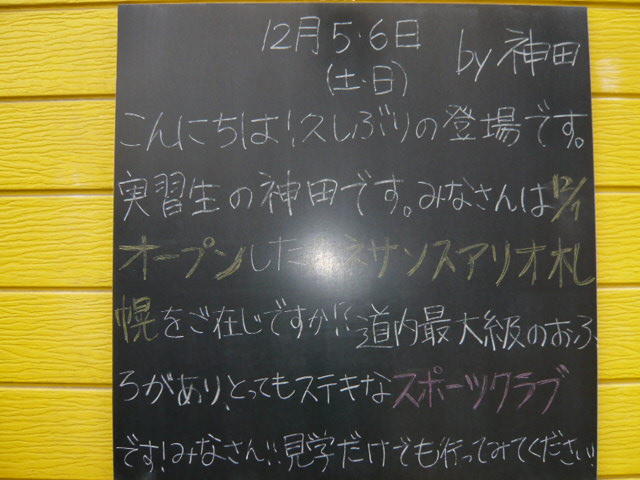 12月5・6日 by 神田
(土・日)
こんにちは!久しぶりの登場です。
実習生の神田です。みなさんは12/1
オープンした ネサンスアリオ札
幌をご在じですか!?道内最大級のおふ
ろがあり、とってもステキなスポーツクラブ
です!みなさん!!見学だけでも行ってみてください!